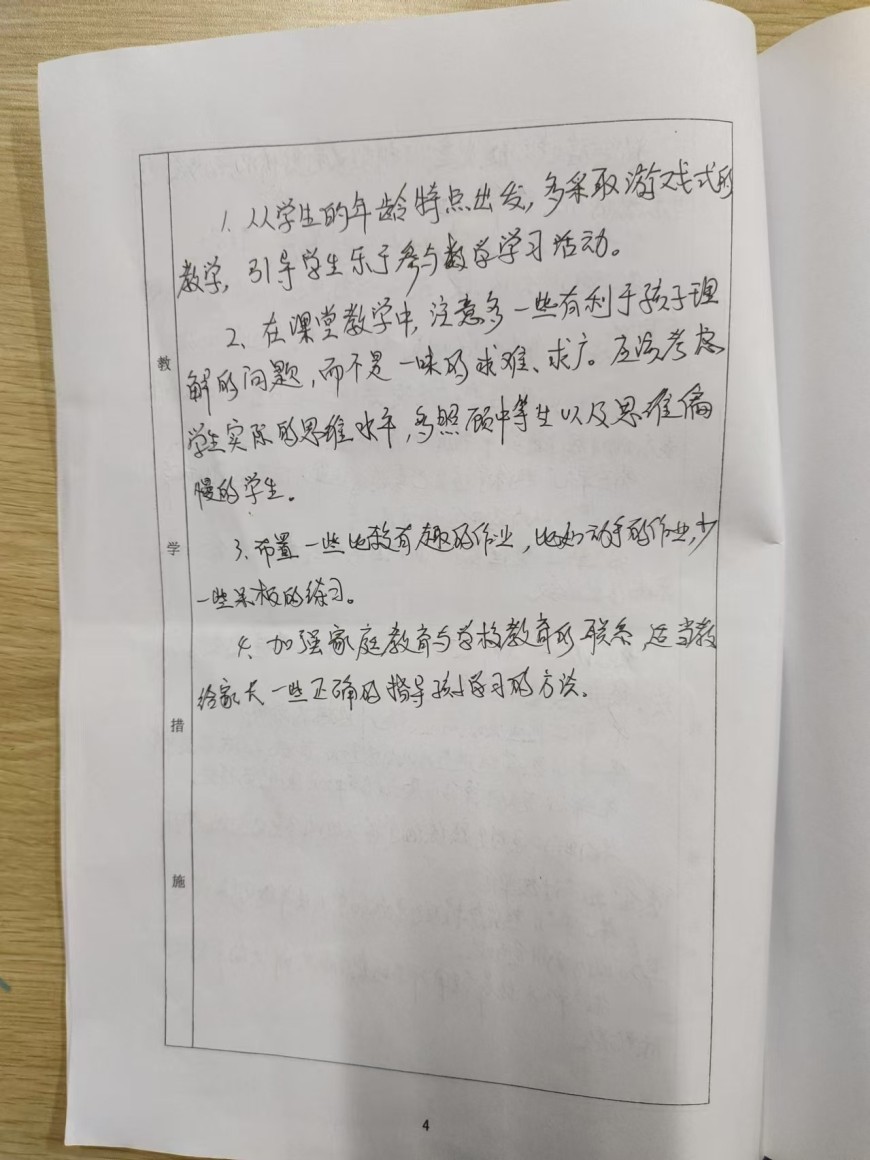 教学措施
1. 从学生的年龄特点出发,多采取游戏式的
教学,引导学生乐于参与数学学习活动。
2、在课堂教学中,注意多一些有利于孩子理
解的问题,而不是一味的求难、求广。应该考虑
学生实际的思维水平,多照顾中等生以及思维偏
慢的学生。
3、布置一些比较有趣的作业,比如动手的作业,少
一些呆板的练习。
4、加强家庭教育与学校教育的联系,适当教
给家长一些正确的指导孩子学习的方法。
4